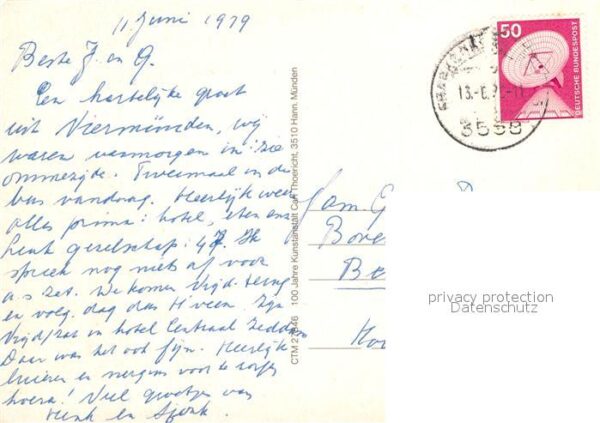 11 Juni 1979
Beste J. en G.
Een hartelijke groet
uit Viermünden, wij
waren vanmorgen in: zie
ommezijde. Tweemaal in de
bus vandaag. Heerlijk weer
alles prima: hotel, eten en
leuk gezelschap: 47. Ik
spreek nog niets af voor
a.s zat. We komen Vrijd. terug
en volg. dag dan H'veen. Zijn
Vrijd/zat in hotel Centraal Zeddam
Daar was het ook fijn. Heerlijk
luieren en nergens voor te zorgen
hoera! Viel groetjes van
Henk en
CTM 100 Jahre Kunstanstalt Carl Thoericht, 3510 Hann. Münden
50
DEUTSCHE BUNDESPOST
13.-6.
3558
Fam. G
Bove
Be
privacy protection
Datenschutz